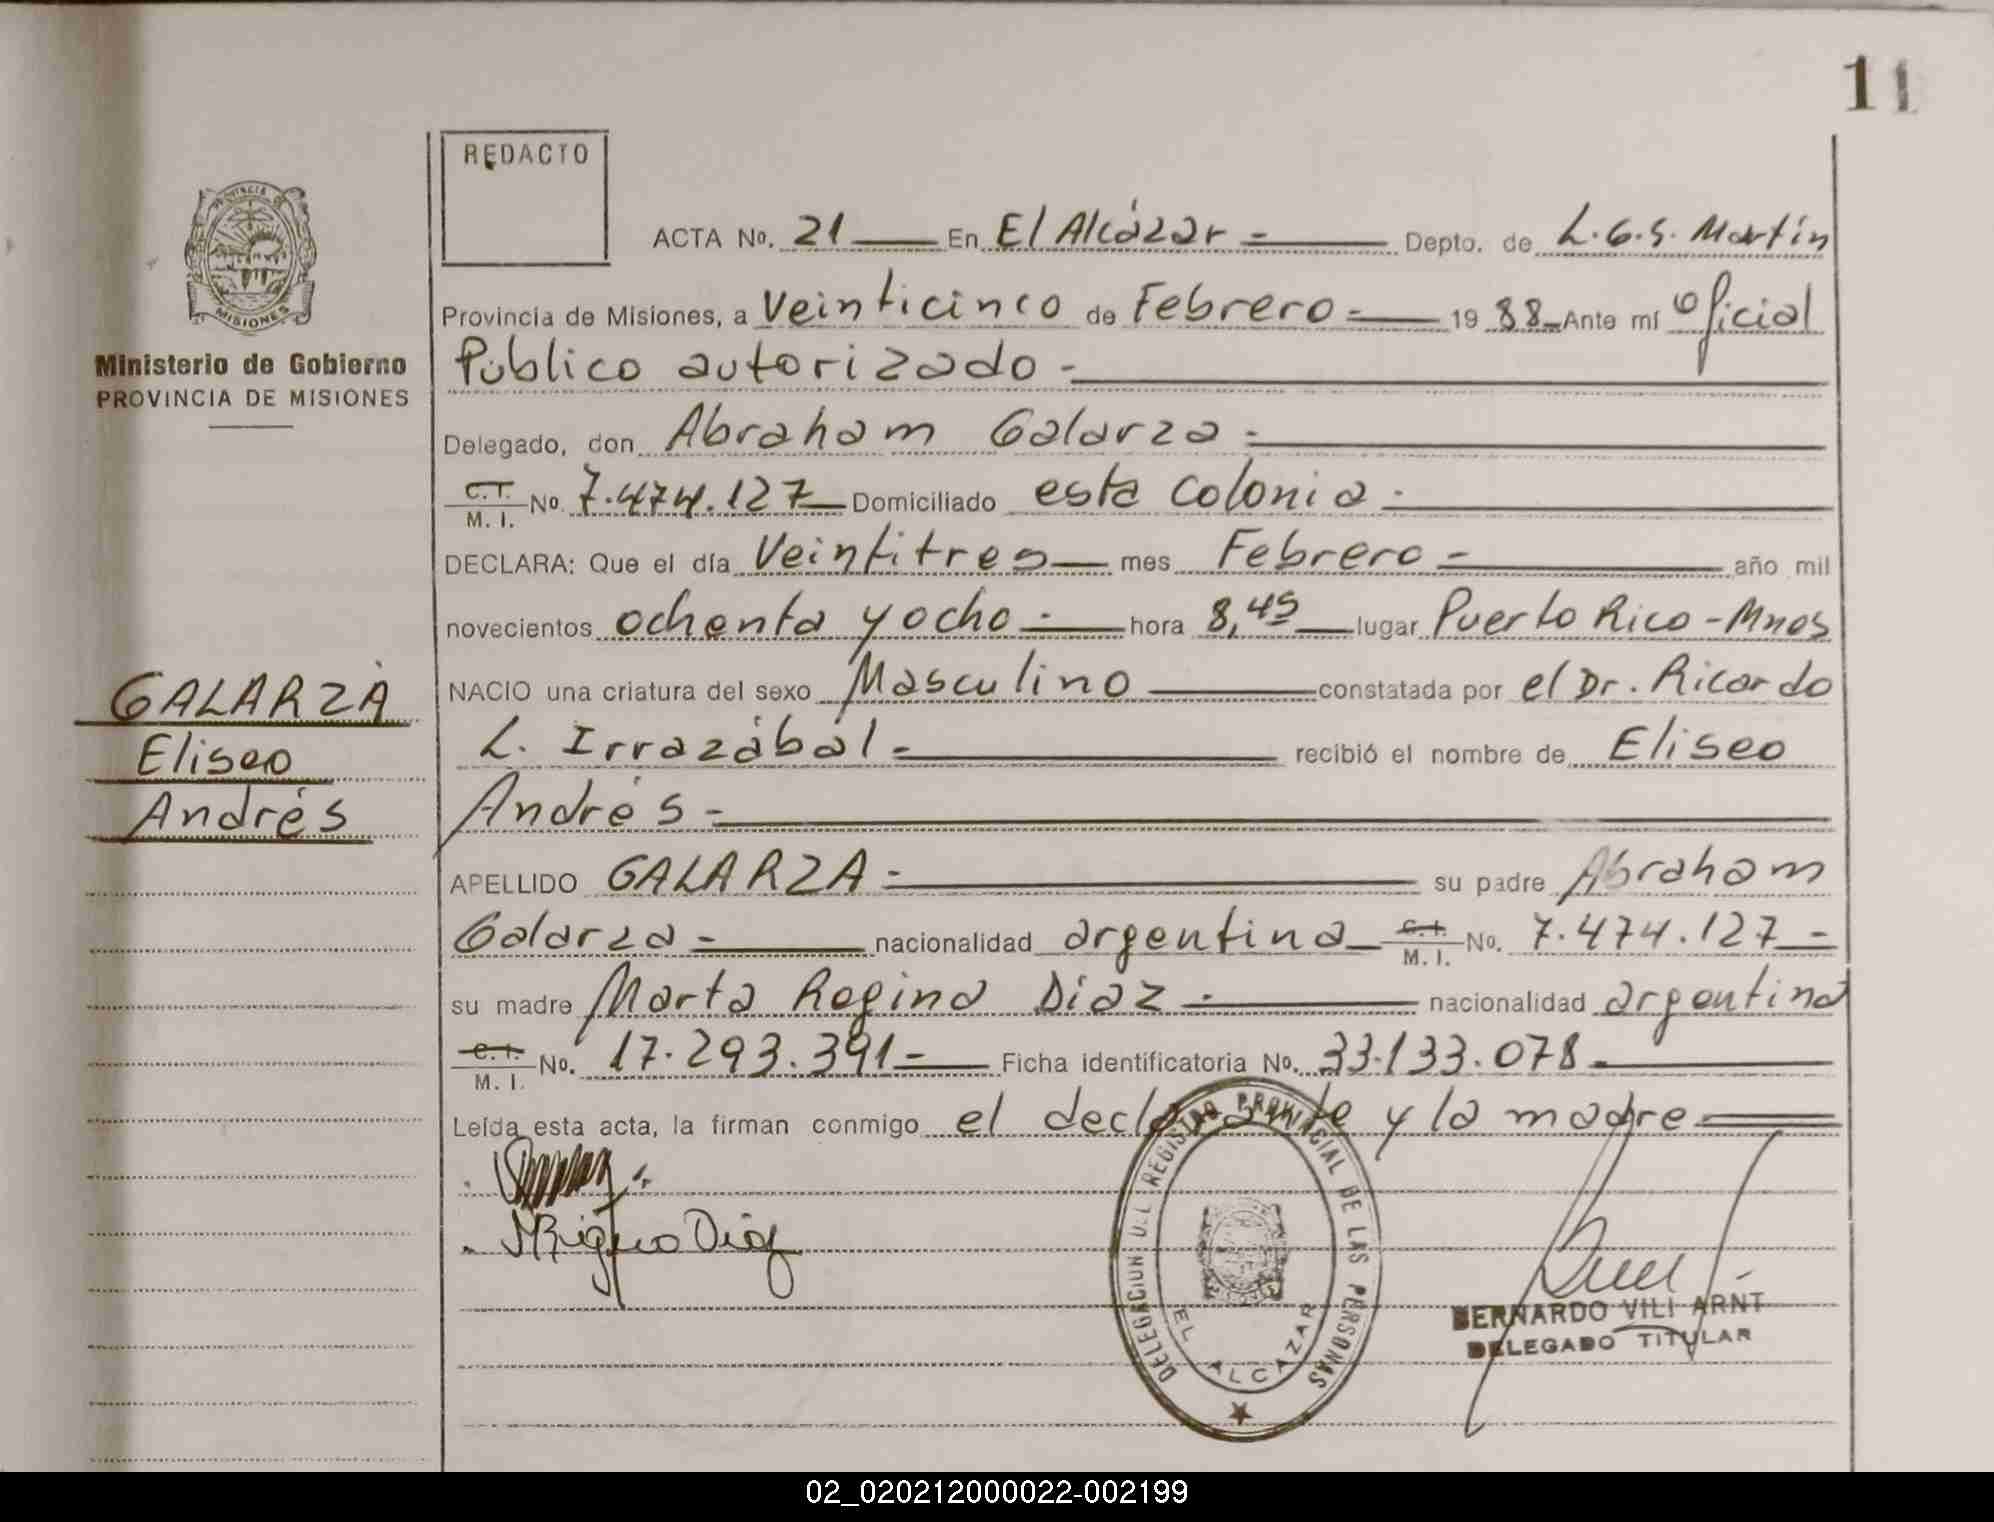 11
REDACTO
PROVINCIA
MISIONES
Ministerio de Gobierno
PROVINCIA DE MISIONES
GALARZA
Eliseo
Andrés
ACTA No. 21 En El Alcázar - Depto. de L.G.S. Martín
Provincia de Misiones, a Veinticinco de Febrero - 1988 Ante mí Oficial
Público autorizado -
Delegado, don Abraham Galarza -
C.T. M. I. No. 7.474.127 Domiciliado esta colonia -
DECLARA: Que el día Veintitres mes Febrero - año mil
novecientos ochenta y ocho - hora 8,45 lugar Puerto Rico - Mnes
NACIO una criatura del sexo Masculino constatada por el Dr. Ricardo
L. Irrazábal - recibió el nombre de Eliseo
Andrés -
APELLIDO GALARZA - su padre Abraham
Galarza - nacionalidad argentina C.I. M. I. No. 7.474.127 -
su madre Marta Regina Díaz - nacionalidad argentina
C.I. M. I. No. 17.293.391 - Ficha identificatoria No. 33.133.078 -
Leída esta acta, la firman conmigo el declarante y la madre
DELEGACION DEL REGISTRO PROVINCIAL DE LAS PERSONAS
EL ALCAZAR
BERNARDO VILI ARNT
DELEGADO TITULAR
02_020212000022-002199